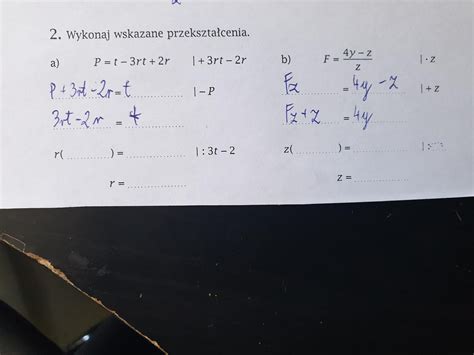 2. Wykonaj wskazane przekształcenia.
a) P = t − 3rt + 2r | + 3rt − 2r
P + 3rt − 2r = t | − P
3rt − 2r = t
r( ) = | : 3t − 2
r =
b) F = (4y − z)/z | · z
Fz = 4y − z | + z
Fz + z = 4y
z( ) = | :
z =